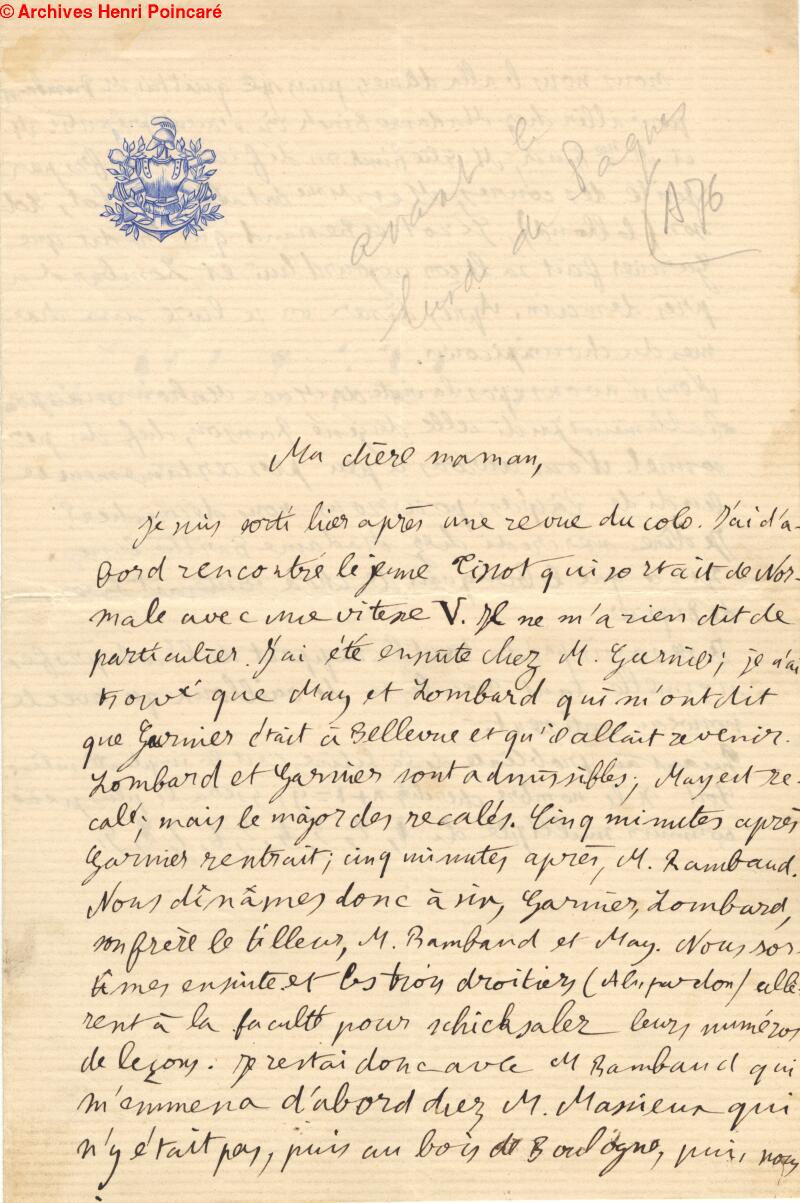 © Archives Henri Poincaré
avant le
lundi de Paques
A 76
Ma chère maman,
Je suis sorti hier après une revue du colo. J'ai d'a-
bord rencontré le jeune Tissot qui sortait de Nor-
male avec une vitesse V. Il ne m'a rien dit de
particulier. J'ai été ensuite chez M. Garnier; je n'ai
trouvé que May et Lombard qui m'ont dit
que Garnier était à Bellevue et qu'il allait revenir.
Lombard et Garnier sont admissibles; May est re-
calé; mais le major des recalés. Cinq minutes après
Garnier rentrait; cinq minutes après, M. Rambaud.
Nous dînâmes donc à six, Garnier, Lombard,
son frère le tilleur, M. Rambaud et May. Nous sor-
tîmes ensuite et les trois droitiers (Ah, pardon) allè-
rent à la faculté pour schicksaler leurs numéros
de leçons. Je restai donc avec M Rambaud qui
m'emmena d'abord chez M. Massieux qui
n'y était pas, puis au bois de Boulogne, puis nous